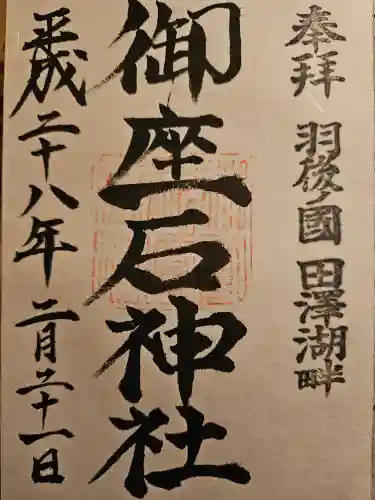 奉拝 羽後ノ國 田澤湖畔
御座石神社
平成二十八年二月二十一日